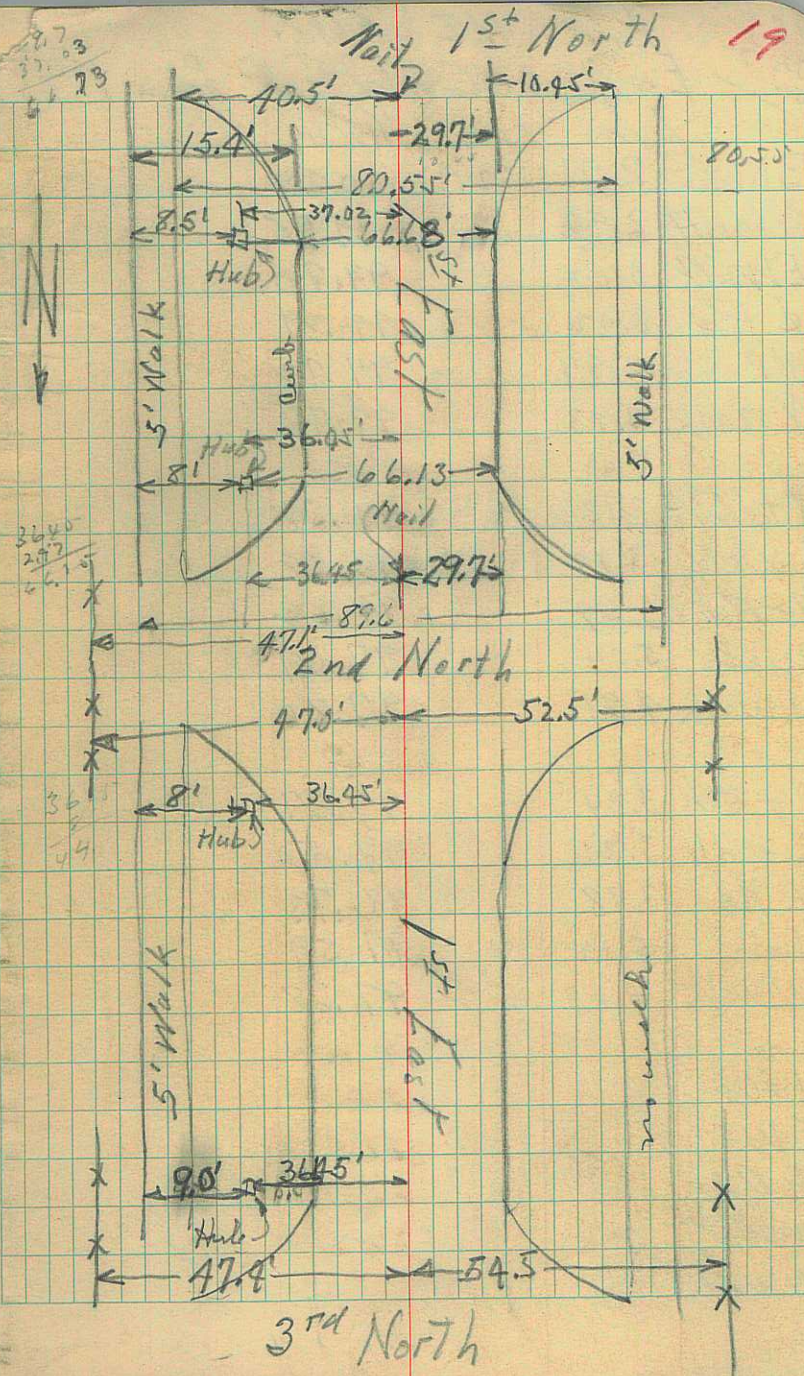 Nail 1st North 19
40.5' 10.45'
15.4' 29.7'
80.55'
80.55
8.5' 37.02 66.68'
Hub
N
1st East
5' Walk
Curb
5' Walk
Hub 36.45'
8' 66.13
Nail
36.45 29.7'
89.6
47.1'
2nd North
52.5'
8' 36.45'
Hub
1st East
5' Walk
no walk
9.0' 36.45'
Hub
47.4' 54.5
3rd North